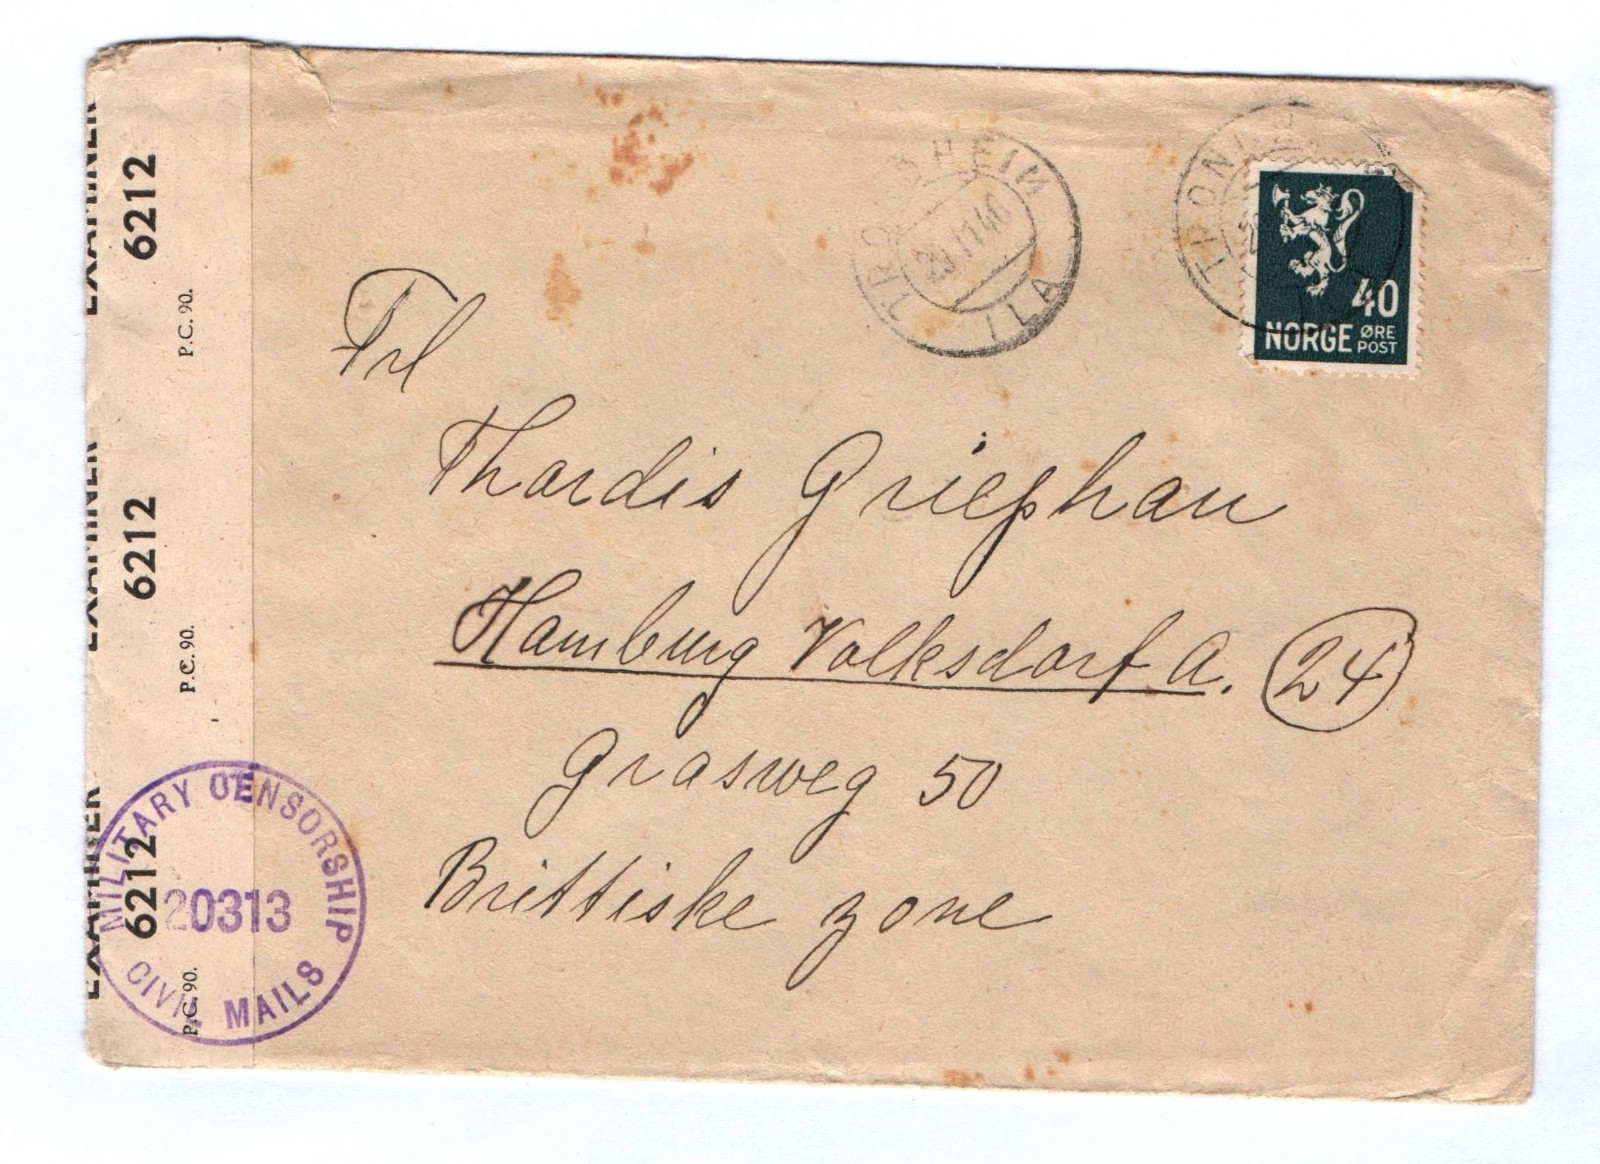 EXAMINER
6212
P.C. 90.
EXAMINER
6212
P.C. 90.
EXAMINER
6212
P.C. 90.
MILITARY CENSORSHIP
20313
CIVIL MAILS
TRONDHEIM
29 11 46
ILA
TRONDHEIM
40
NORGE ØRE
POST
Frl
Thordis Griephan
Hamburg Volksdorf A. 24
Grasweg 50
Brittiske zone